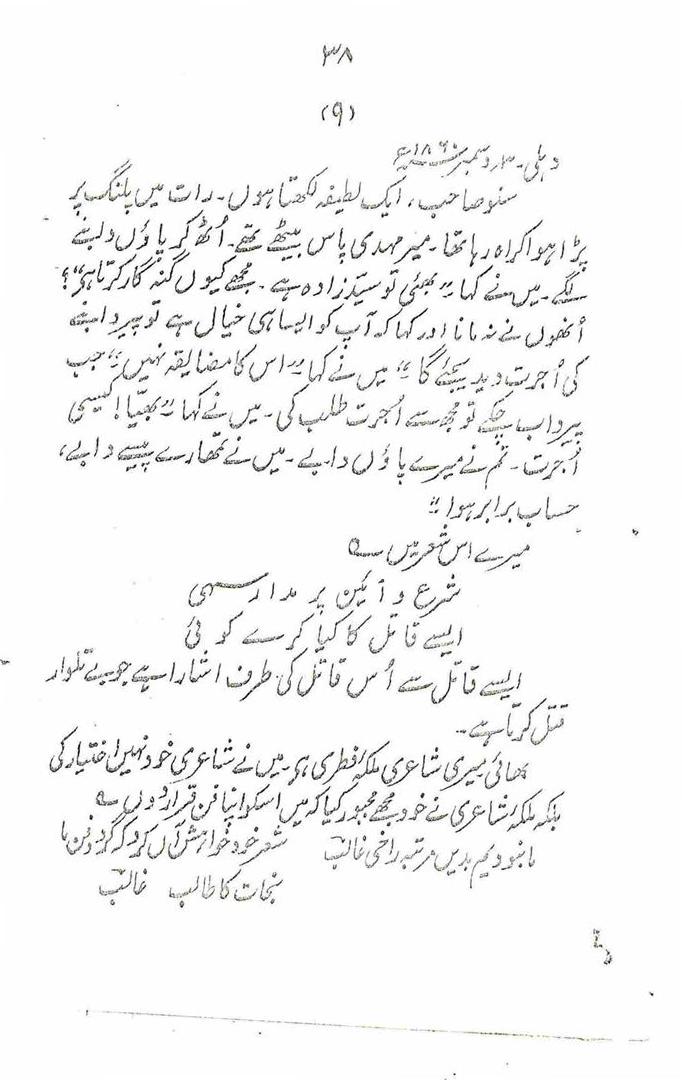 ۳۸
(۹)
دہلی۔ ۳؍دسمبر ۱۸۶۰ء
سنو صاحب، ایک لطیفہ لکھتا ہوں۔ رات میں پلنگ پر
پڑا ہوا کراہ رہا تھا۔ میر مہدی پاس بیٹھے تھے۔ اُٹھ کر پاؤں دابنے
لگے۔ میں نے کہا "بھئی تو سیّد زادہ ہے۔ مجھے کیوں گنہ گار کرتا ہے"؟
اُنھوں نے نہ مانا اور کہا کہ آپ کو ایسا ہی خیال ہے تو پیر دابنے
کی اُجرت دید یجئے گا" میں نے کہا "اس کا مضایقہ نہیں" جب
پیر داب چکے تو مجھ سے اُجرت طلب کی۔ میں نے کہا "بھیّا! کیسی
اُجرت۔ تم نے میرے پاؤں دابے۔ میں نے تمھارے پیسے دابے،
حساب برابر ہوا"
میرے اس شعر میں ؎
شرع و آئین پر مدار سہی
ایسے قاتل کا کیا کرے کوئی
ایسے قاتل سے اُس قاتل کی طرف اشارا ہے جو بے تلوار
قتل کرتا ہے۔
بھائی میری شاعری ملکۂ فطری ہے۔ میں نے شاعری خود نہیں اختیار کی
بلکہ ملکۂ شاعری نے خود مجھے مجبور کیا کہ میں اسکو اپنا فن قرار دوں ؎
ما نبودیم بدیں مرتبہ راضی غالبؔ شعر خود خواہش آں کرد کہ گردد فن ما
نجات کا طالب غالبؔ